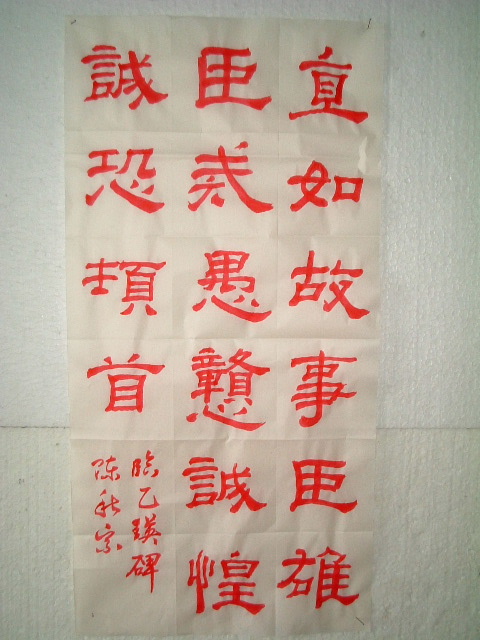 直如故事臣雄
臣戒愚戇誠惶
誠恐頓首
临乙瑛碑
陈秋宗